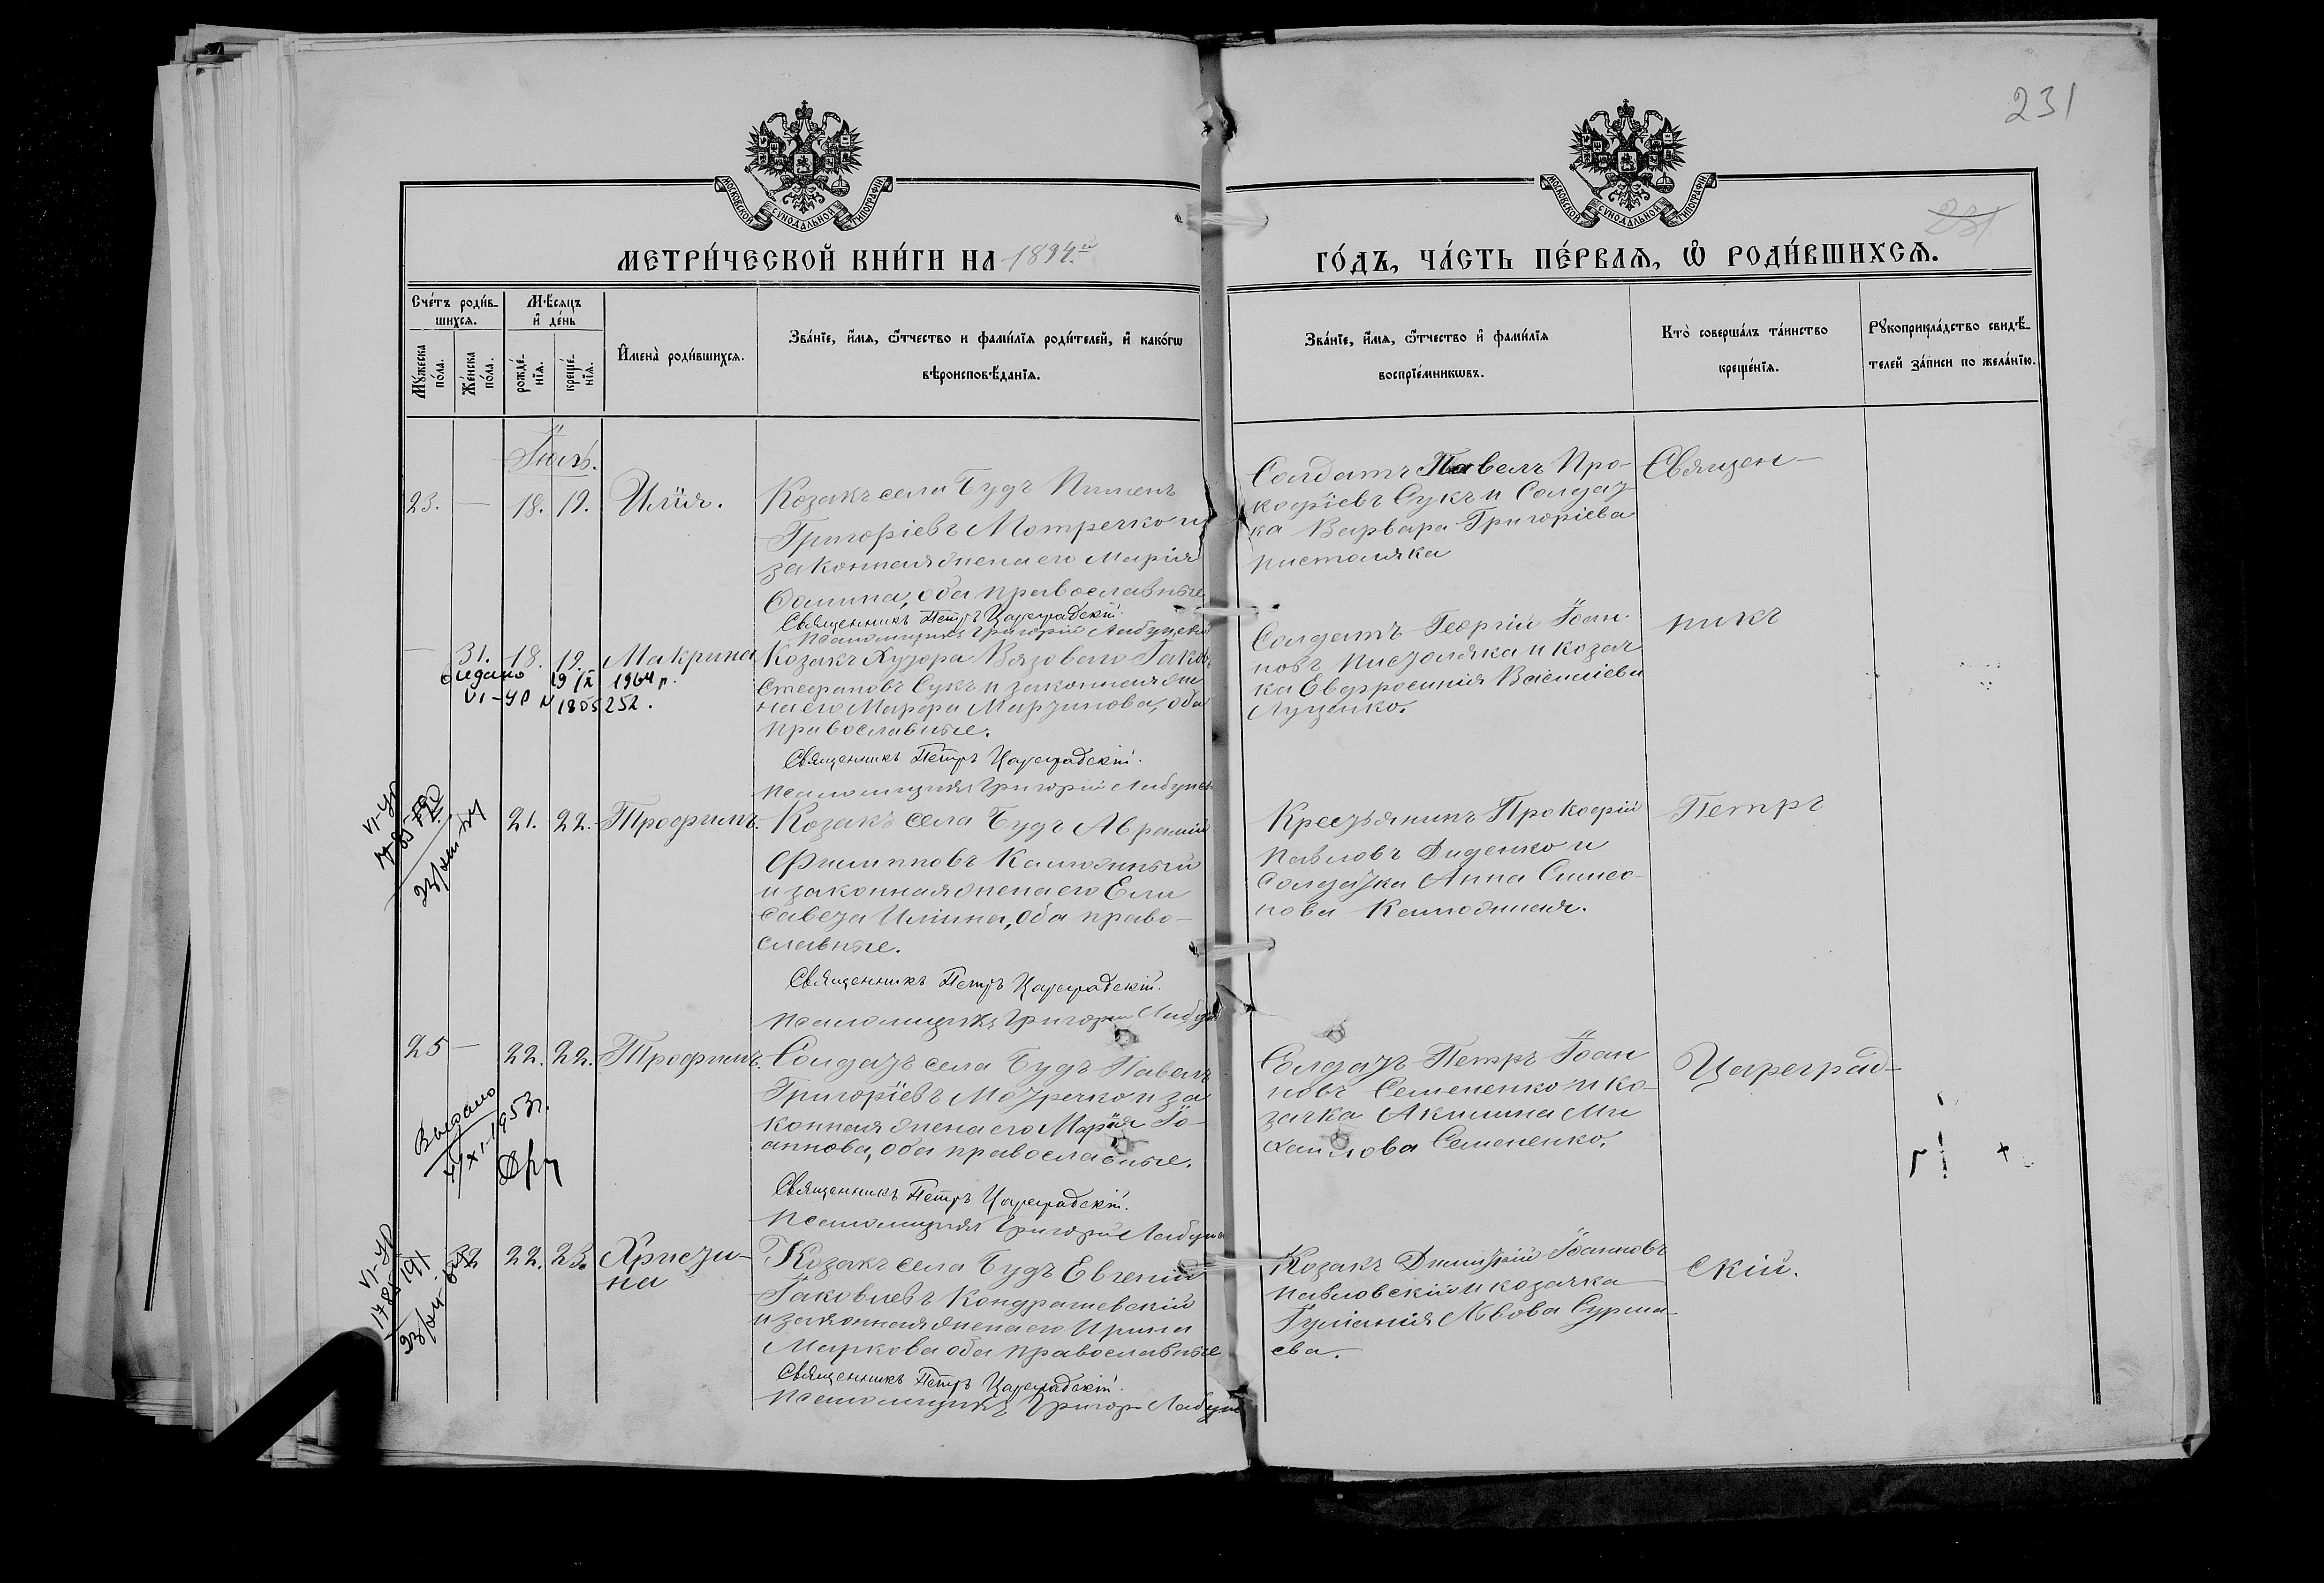 231
231
МОСКОВСКОЙ СѴНОДАЛЬНОЙ ТИПОГРАФІИ
МОСКОВСКОЙ СѴНОДАЛЬНОЙ ТИПОГРАФІИ
МЕТРИ́ЧЕСКОЙ КНИ́ГИ НА 1894й
ГО́ДЪ, ЧА́СТЬ ПЕ́РВАѦ, Ѡ҆ РОДИ́ВШИХСѦ.
Сче́тъ роди́в-
шихсѧ.
Мѣ́сѧцъ
и҆ де́нь
Мꙋ́жеска
по́ла.
Же́нска
по́ла.
рожде́-
нїѧ.
креще́-
нїѧ.
И҆мена̀ роди́вшихсѧ.
Зва́нїе, и҆́мѧ, ѻ҆́тчество и фами́лїѧ роди́телей, и҆ како́гѡ
вѣроисповѣ́данїѧ.
Зва́нїе, и҆́мѧ, ѻ҆́тчество и҆ фами́лїѧ
воспрїе́мникѡвъ.
Кто̀ соверша́лъ та́инство
креще́нїѧ.
Рꙋкоприкла́дство свидѣ́-
телей за́писи по жела́нїю.
Іюль.
23. — 18. 19. Илія.
Козакъ села Будъ Пименъ
Григоріевъ Мотречко и
законная жена его Марія
Фомина, оба православные
Священникъ Петръ Цареградскій.
Псаломщикъ Григорій
Солдатъ Павелъ Про-
кофіевъ Сукъ и Солдат
ка Варвара Григоріева
Пистоляка
Священ-
— 31. 18. 19. Макрина
видано 19/X 1964 р.
VI-УР N 1805252.
Козакъ Хутора Вязоваго Іаков
Стефановъ Сукъ и законная же
на его Марфа Мартинова, оба
православные.
Священникъ Петръ Цареградскій.
Псаломщикъ Григорій
Солдатъ Георгій Іоан-
новъ Пистоляка и козач
ка Евфросинія Василіева
Луценко.
никъ
VI-УР
21. 22. Трофимъ.
Козакъ села Будъ Аврамій
Филипповъ Калюжный
и законная жена его Ели
савета Иліина, оба право-
славные.
Священникъ Петръ Цареградскій.
Псаломщикъ Григорій
Крестьянинъ Прокофій
Павловъ Диденко и
Солдатка Анна Симео-
нова Калюжная.
Петръ
25 — 22. 22. Трофимъ.
Выдано
XI-1953г.
Солдатъ села Будъ Павелъ
Григоріевъ Мотречко и за
конная жена его Марія Іо-
аннова, оба православные.
Священникъ Петръ Цареградскій.
Псаломщикъ Григорій
Солдатъ Петръ Іоан
новъ Семененко и ко-
зачка Акилина Ми
хаилова Семененко.
Цареград-
VI-УР
32 22. 23. Христи-
на
Козакъ села Будъ Евгеній
Іаковлевъ Кондрашевскій
и законная жена его Ирина
Маркова оба православные
Священникъ Петръ Цареградскій.
Псаломщикъ Григор
Козакъ Димитрій Іоанновъ
Павловскій и козачка
Іуліанія Львова Сурма-
ева.
скій.